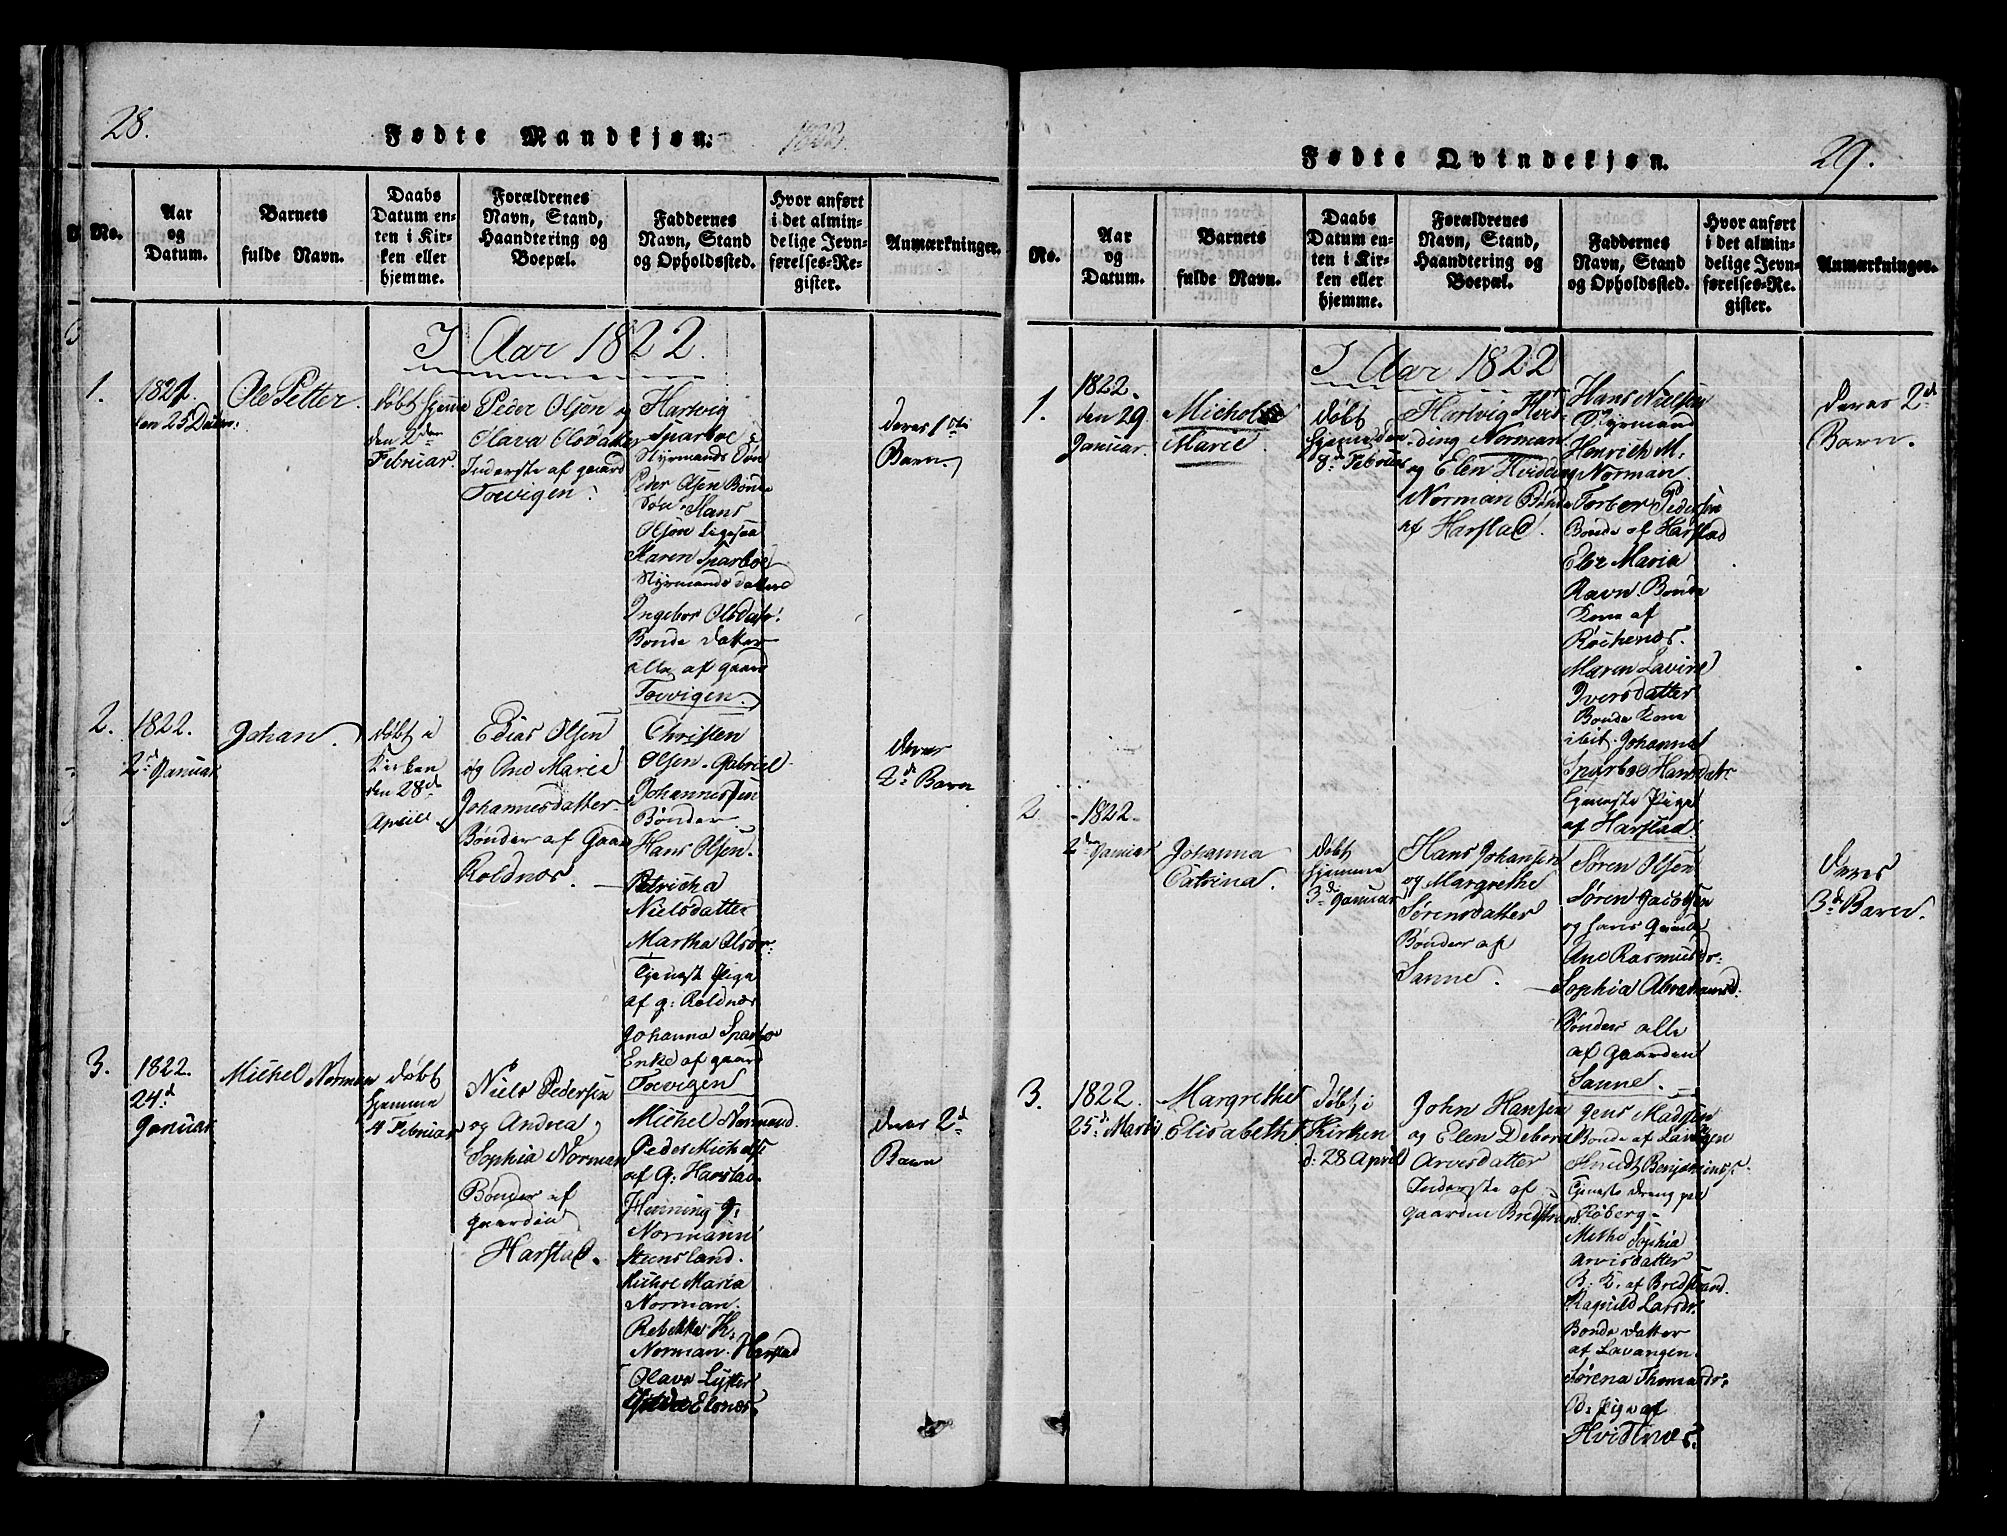 28.
Fødte Mandkjøn.
1822.
No.
Aar
og
Datum.
Barnets
fulde Navn.
Daabs
Datum en-
ten i Kir-
ken eller
hjemme.
Forældrenes
Navn, Stand,
Haandtering og
Boepæl.
Faddernes
Navn, Stand
og Opholdssted.
Hvor anført
i det almin-
delige Jevn-
førelses-Re-
gister.
Anmærkninger.
I Aar 1822.
1.
1821.
den 25
Ole Petter.
døbt hjeme
den 2den
Februar.
Peder Olsen og
Olava Olsdatter
Inderste af gaard
Toevigen.
Hartvig
Sparboe
Styrmands Søn
Peder Olsen Bonde
Søn. Hans
Olsen Ligesaa
Karen Sparboe
Styrmands datter
Ingebor Olsdatr:
Bonde datter
alle af gaard
Toevigen.
deres 1ste
Barn.
2.
1822.
2d Januar
Johan.
døbt i
Kirken
den 28de
Aprill
Edias Olsen
og Ane Marie
Johannesdatter
Bønder af Gaard
Roldnæs.
Christen
Olsen. Gabriel
Johannessen
Bønder
Hans Olsen.
Petricha
Nielsdatter
Martha Olsdr:
Tjeneste Pige
af g: Roldnæs
Johanna Sparboe
Enke af gaard
Toevigen
deres
2d Barn
3.
1822.
24d
Januar
Michel Norman
døbt
hjemme
4 Februar
Niels Pedersen
og Andrea
Sophia Norman
Bønder af
gaarden
Harstad.
Michel Normand.
Peder Michels:
af G: Harstad.
Henning J:
Normann
Steensland.
Michol Maria
Norman.
Rebekka K:
Norman. Harstad
Olava Lytter
Elgnæs.
deres 2d
Barn
29.
Fødte Qvindekjøn.
No.
Aar
og
Datum.
Barnets
fulde Navn.
Daabs
Datum en-
ten i Kir-
ken eller
hjemme.
Forældrenes
Navn, Stand,
Haandtering og
Boepæl.
Faddernes
Navn, Stand
og Opholdssted.
Hvor anført
i det almin-
delige Jevn-
førelses-Re-
gister.
Anmærkninger.
I Aar 1822
1.
1822.
den 29
Januar.
Michol
Marie.
døbt
hjemme den
8d Februar
Hartvig Hvid-
ding Norman
og Elen Hvidding
Norman Bønder
af Harstad.
Hans Nielsen
Styrmand
Henrich M.
Norman
Torber Pedersen
Bonde af Harstad
Else Maria
Ravn. Bonde
Kone af
Rochenæs.
Maren Lavine
Iversdatter
Bonde Kone
ibit. Johanna
Sparboe Hansdatr
tjeneste Pige
af Harstad.
deres 2d
Barn.
2
1822.
2den Januar
Johanna
Catrina.
døbt
hjemme
3d Januar
Hans Johansen
og Margrethe
Sørensdatter
Bønder af
Sanne.
Søren Olsen
Søren Jacobsen
og hans qvinde
Ane Rasmusdr:
Sophia Abrahamsd:
Bønder alle
af gaarden
Sanne.
deres
3d Barn.
3.
1822.
25d Marti
Margrethe
Elisabeth
døbt i
Kirken
d: 28 April
John Hansen
og Elen Debora
Arvesdatter
Inderste af
gaarden Bredstrand.
Jens Madsen
Bonde af Lavangen
Knudt Benjaminss.
Tjeneste dreng paa
Røberg
Metha Sophia
Arvisdatter
B: K. af Bredstrand.
Ragnild Larsdr:
Bonde datter
af Lavangen.
Sørena Thomasdr:
B: Pige af
Hvidenæs.